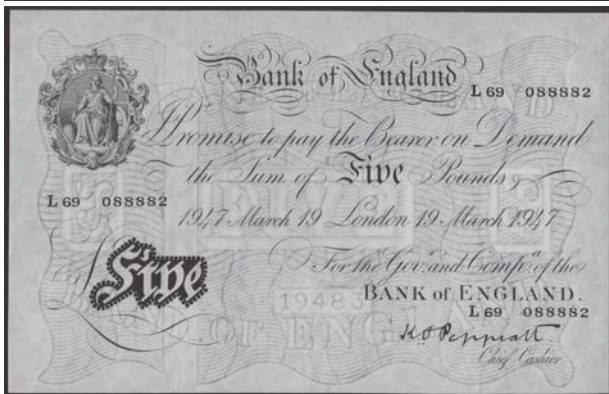 Bank of England
L 69 088882
I Promise to pay the Bearer on Demand
the Sum of Five Pounds
L 69 088882
1947 March 19 London 19 March 1947
For the Govr. and Compa. of the
BANK of ENGLAND.
L 69 088882
£ Five
K O Peppiatt
Chief Cashier
19483
OF ENGL